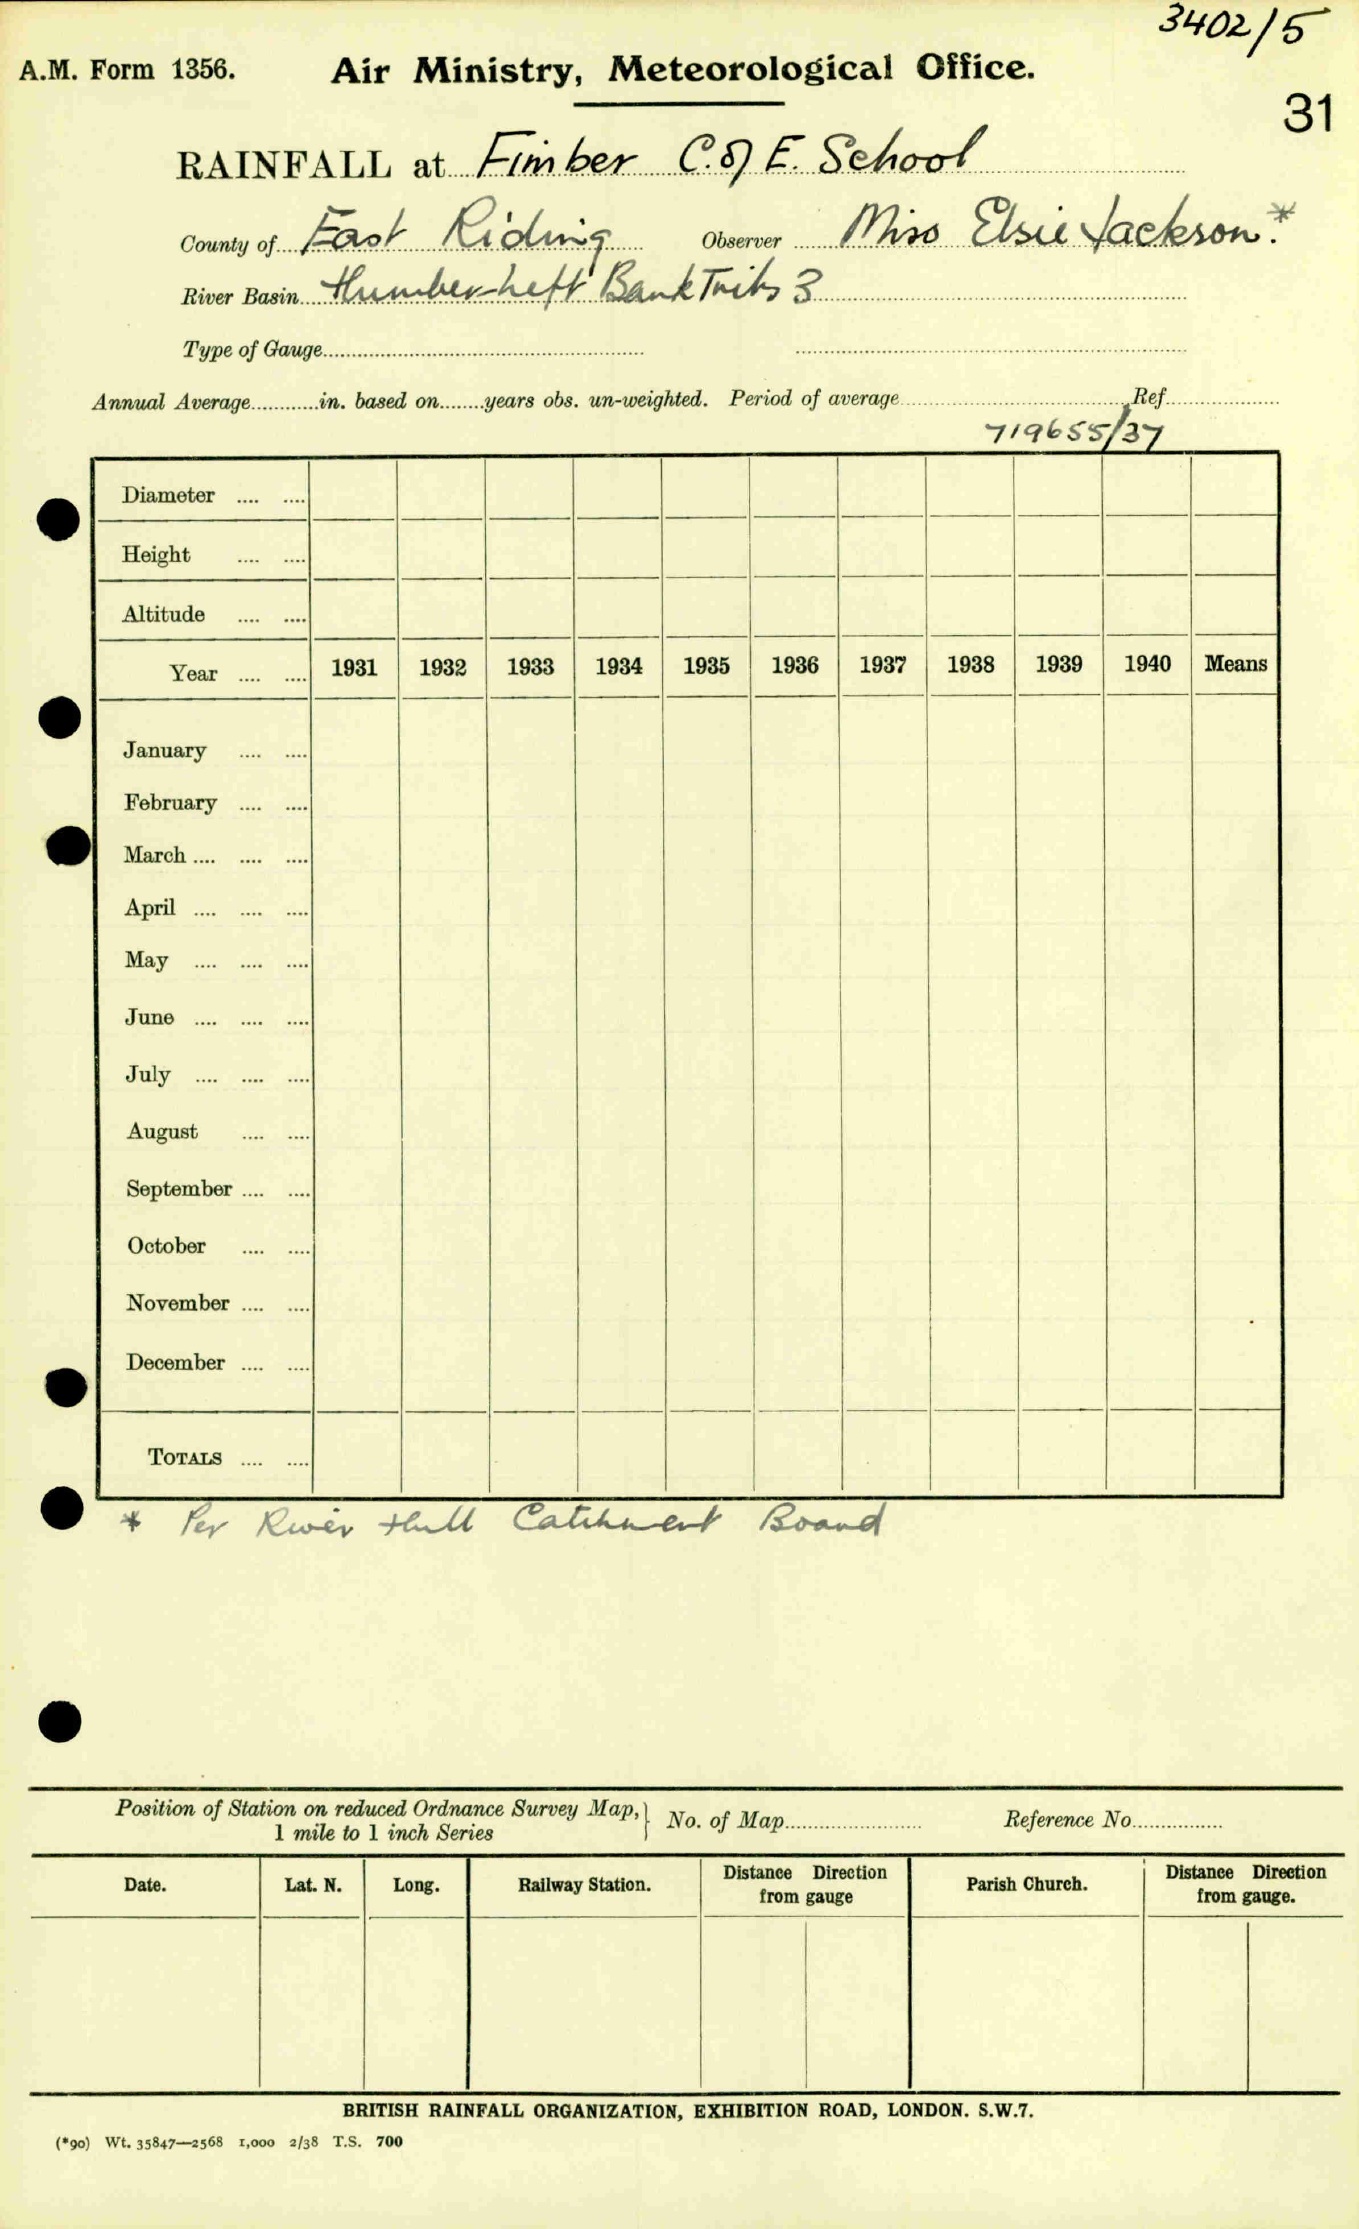 3402/5
A.M. Form 1356. Air Ministry, Meteorological Office.
31
RAINFALL at Fimber C. of E. School
County of East Riding Observer Miss Elsie Jackson.*
River Basin Humber-Left Bank Tribs 3
Type of Gauge
Annual Average............in. based on........years obs. un-weighted. Period of average Ref.
719655/37
Diameter .... ....
Height .... ....
Altitude .... ....
Year .... .... 1931 1932 1933 1934 1935 1936 1937 1938 1939 1940 Means
January .... ....
February .... ....
March .... .... ....
April .... .... ....
May .... .... ....
June .... .... ....
July .... .... ....
August .... ....
September .... ....
October .... ....
November .... ....
December .... ....
TOTALS .... ....
* Per River Hull Catchment Board
Position of Station on reduced Ordnance Survey Map,} No. of Map Reference No
1 mile to 1 inch Series
Date. Lat. N. Long. Railway Station. Distance Direction from gauge Parish Church. Distance Direction from gauge.
BRITISH RAINFALL ORGANIZATION, EXHIBITION ROAD, LONDON. S.W.7.
(*90) Wt. 35847—2568 1,000 2/38 T.S. 700